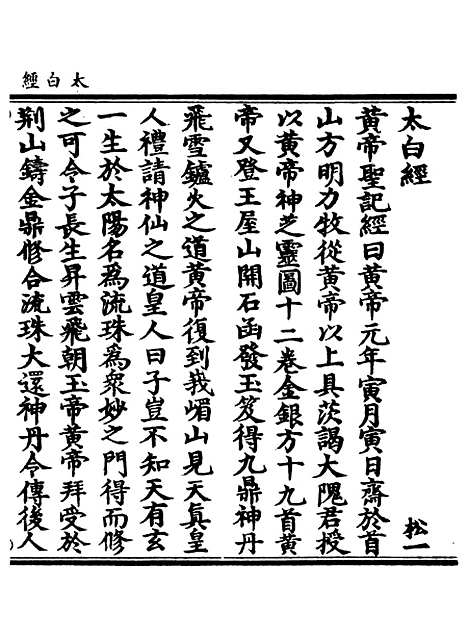 太白經
太白經　松一
黃帝聖記經曰黃帝元年寅月寅日齋於首
山方明力牧從黃帝以上具茨謁大隗君授
以黃帝神芝靈圖十二卷金銀方十九首黃
帝又登王屋山開石函發玉笈得九鼎神丹
飛雪鑪火之道黃帝復到峩嵋山見天真皇
人禮請神仙之道皇人曰子豈不知天有玄
一生於太陽名為流珠為眾妙之門得而修
之可令子長生昇雲飛朝玉帝黃帝拜受於
荊山鑄金鼎修合流珠大還神丹令傳後人